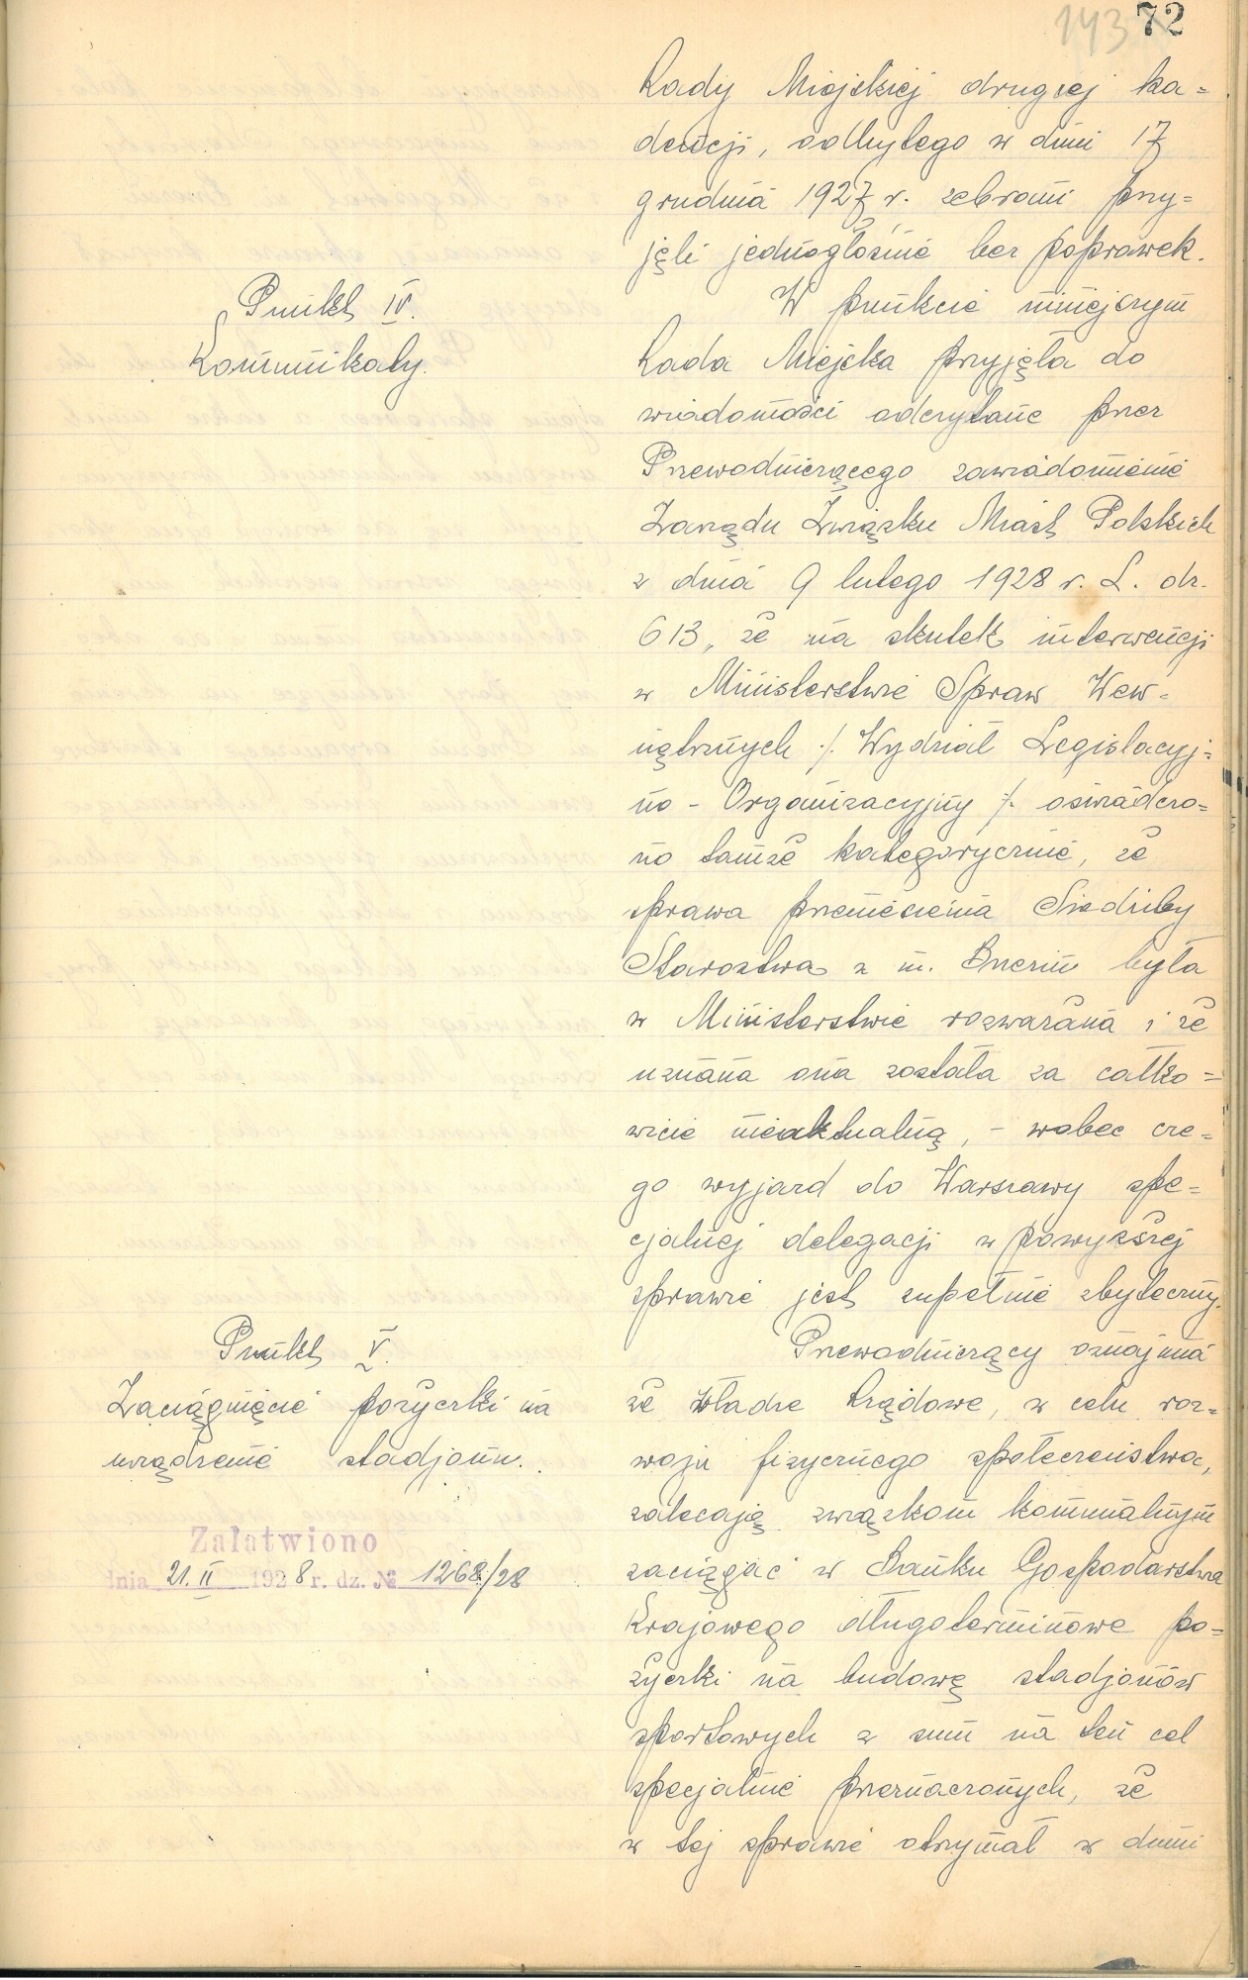 143 72
Rady Miejskiej drugiej ka=
dencji, odbytego w dniu 17
grudnia 1927 r. zebrani przy=
jęli jednogłośnie bez poprawek.
Punkt IV.
Komunikaty.
W punkcie niniejszym
Rada Miejska przyjęła do
wiadomości odczytane przez
Przewodniczącego zawiadomienie
Zarządu Związku Miast Polskich
z dnia 9 lutego 1928 r. L. dz.
613, że na skutek interwencji
w Ministerstwie Spraw Wew=
nętrznych ./. Wydział Legislacyj=
no - Organizacyjny ./. oświadczo=
no tamże kategorycznie, że
sprawa przeniesienia Siedziby
Starostwa z m. Brzezin była
w Ministerstwie rozważana i że
uznana ona została za całko=
wicie nieaktualną, - wobec cze=
go wyjazd do Warszawy spe=
cjalnej delegacji w powyższej
sprawie jest zupełnie zbyteczny.
Punkt V.
Zaciągnięcie pożyczki na
urządzenie stadjonu.
Załatwiono
dnia 21. II 1928 r. dz. № 1268/28
Przewodniczący oznajmia
że Władze Rządowe, w celu roz=
woju fizycznego społeczeństwa,
zalecają związkom komunalnym
zaciągać w Banku Gospodarstwa
Krajowego długoterminowe po=
życzki na budowę stadjonów
sportowych z sum na ten cel
specjalnie przeznaczonych, że
w tej sprawie otrzymał w dniu